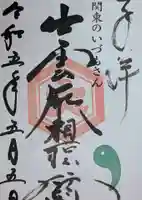 奉拝
関東のいづもさん
出雲大社相模分祠
令和五年五月五日